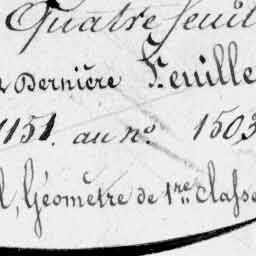 Quatre feuil
Dernière Feuille
1151. au nº. 1503
Géomètre de 1re. classe